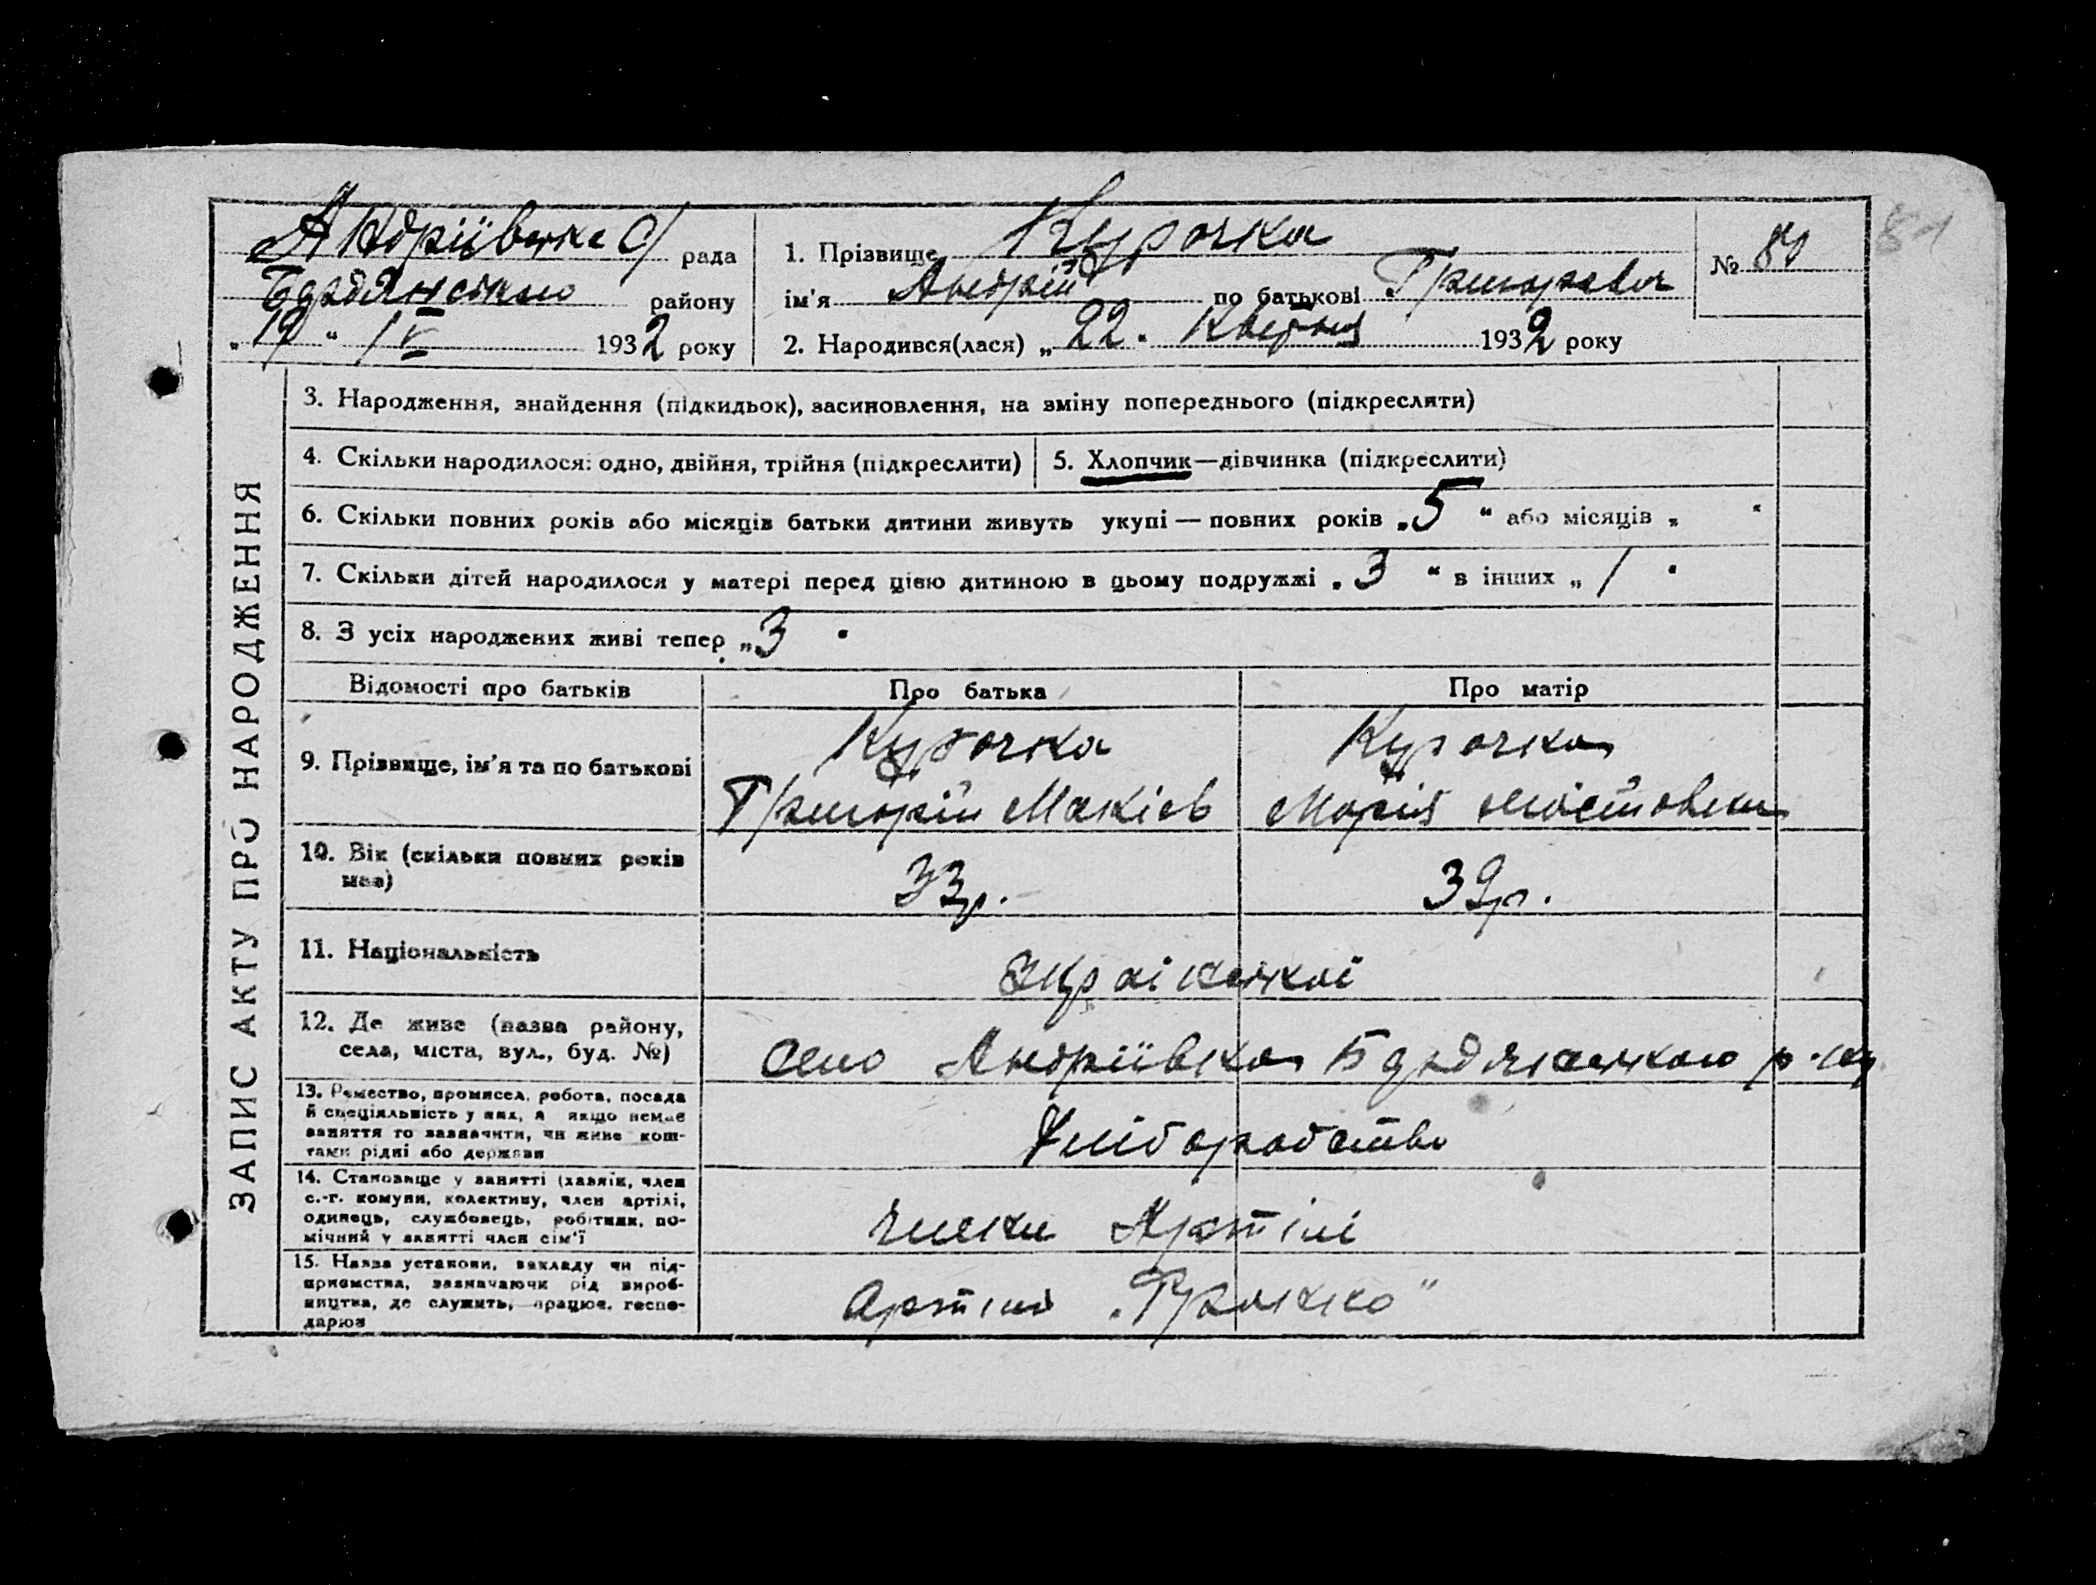 Андріївська с/ рада
Бердянського району
„19“ IV 1932 року
1. Прізвище Курочка
ім'я Андрій по батькові Григорович
2. Народився(лася) „22“ Квітня 1932 року
№ 80
81
ЗАПИС АКТУ ПРО НАРОДЖЕННЯ
3. Народження, знайдення (підкидьок), засиновлення, на зміну попереднього (підкреслити)
4. Скільки народилося: одно, двійня, трійня (підкреслити)
5. Хлопчик—дівчинка (підкреслити)
6. Скільки повних років або місяців батьки дитини живуть укупі — повних років „5“ або місяців „ “
7. Скільки дітей народилося у матері перед цією дитиною в цьому подружжі „3“ в інших „/“
8. З усіх народжених живі тепер „3“
Відомості про батьків Про батька Про матір
9. Прізвище, ім'я та по батькові
Курочка
Григорій
Курочка
Марія
10. Вік (скільки повних років
має)
33р.
39р.
11. Національність
Української
12. Де живе (назва району,
села, міста, вул., буд. №)
село Андріївка Бердянського р-ну
13. Ремество, промисел, робота, посада
й спеціяльність у них, а якщо немає
заняття то зазначити, чи живе кош-
тами рідні або держави
Хліборобство
14. Становище у занятті (хазяїн, член
с.-г. комуни, колективу, член артілі,
одинець, службовець, робітник, по-
мічний у занятті член сім'ї
члени Артілі
15. Назва установи, закладу чи під-
приємства, зазначаючи рід вироб-
ництва, де служить, працює, госпо-
дарює
Артіль